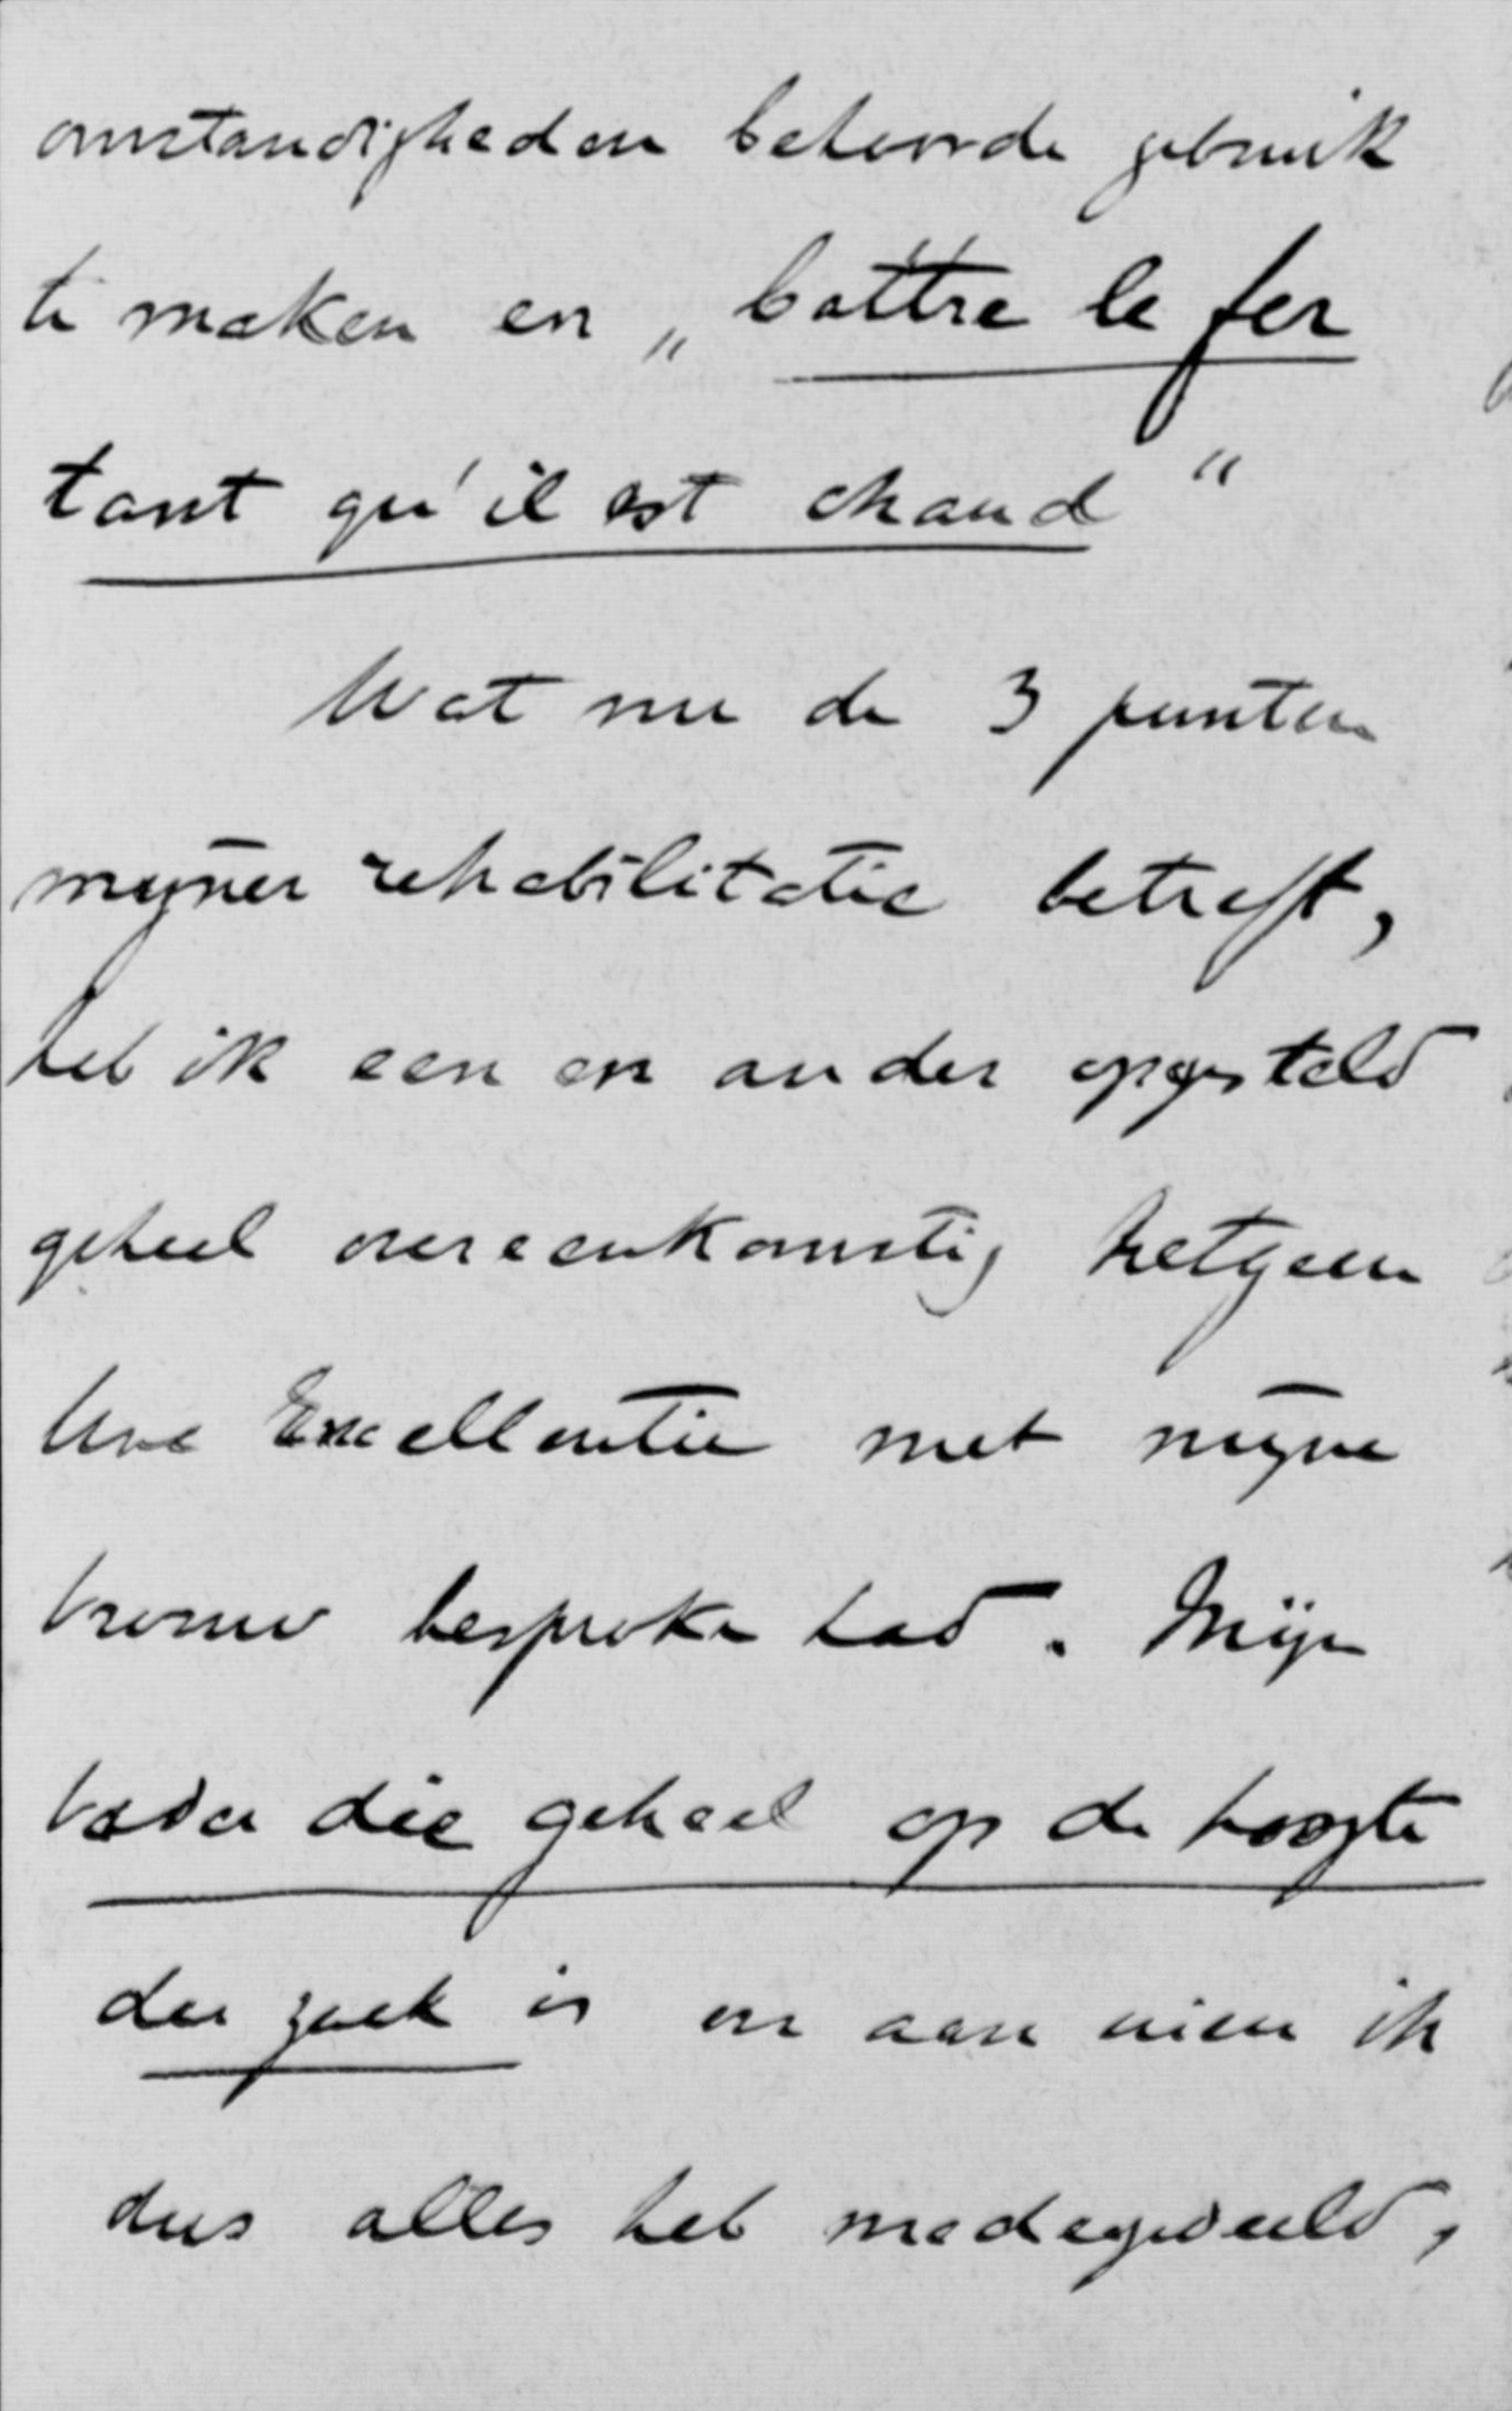 omstandigheden behoorde gebruik
te maken en „battre le fer
tant qu'il est chaud"
Wat nu de 3 punten
mijner rehabilitatie betreft,
heb ik een en ander opgesteld
geheel overeenkomstig hetgeen
Uwe Excellentie met mijne
vrouw besproken had. Mijn
vader die geheel op de hoogte
der zaak is en aan wien ik
dus alles heb medegedeeld,